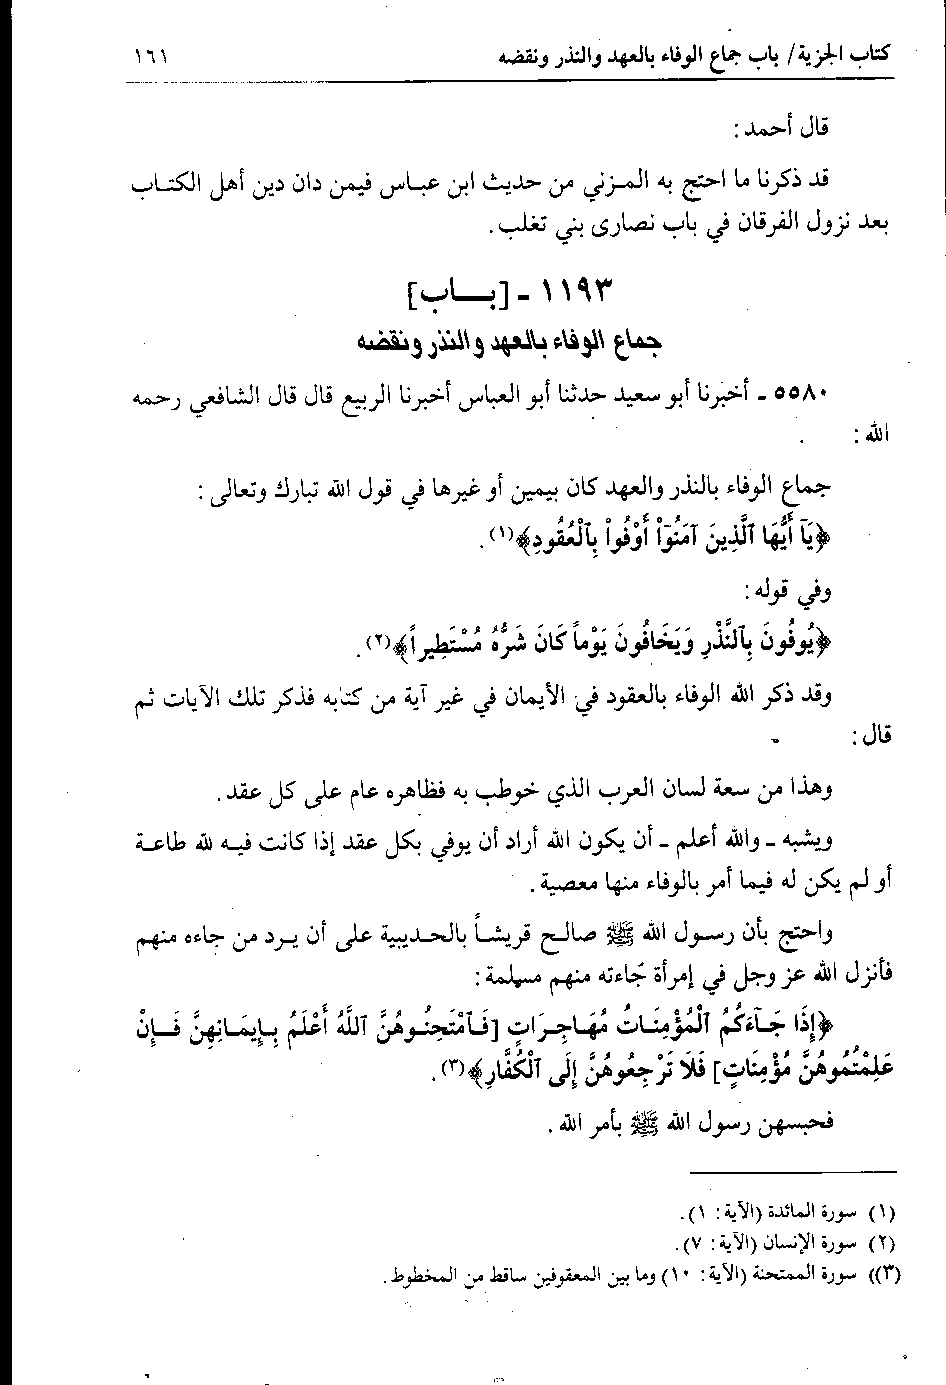 كتاب الجزية/ باب جماع الوفاء بالعهد والنذر ونقضه ١٦١
قال أحمد:
قد ذكرنا ما احتج به المزني من حديث ابن عباس فيمن دان دين أهل الكتاب
بعد نزول الفرقان في باب نصارى بني تغلب.
١١٩٣ - [باب]
جماع الوفاء بالعهد والنذر ونقضه
٥٥٨٠ - أخبرنا أبو سعيد حدثنا أبو العباس أخبرنا الربيع قال قال الشافعي رحمه
الله:
جماع الوفاء بالنذر والعهد كان بيمين أو غيرها في قول الله تبارك وتعالى:
﴿يَآ أَيُّهَا ٱلَّذِينَ آمَنُوٓاْ أَوْفُواْ بِٱلْعُقُودِ﴾(١).
وفي قوله:
﴿يُوفُونَ بِٱلنَّذْرِ وَيَخَافُونَ يَوْماً كَانَ شَرُّهُ مُسْتَطِيراً﴾(٢).
وقد ذكر الله الوفاء بالعقود في الأيمان في غير آية من كتابه فذكر تلك الآيات ثم
قال:
وهذا من سعة لسان العرب الذي خوطب به فظاهره عام على كل عقد.
ويشبه - والله أعلم - أن يكون الله أراد أن يوفي بكل عقد إذا كانت فيه لله طاعة
أو لم يكن له فيما أمر بالوفاء منها معصية.
واحتج بأن رسول الله ﷺ صالح قريشاً بالحديبية على أن يرد من جاءه منهم
فأنزل الله عز وجل في إمرأة جاءته منهم مسلمة:
﴿إِذَا جَآءَكُمُ ٱلْمُؤْمِنَاتُ مُهَاجِرَاتٍ [فَٱمْتَحِنُوهُنَّ ٱللَّهُ أَعْلَمُ بِإِيمَانِهِنَّ فَإِنْ
عَلِمْتُمُوهُنَّ مُؤْمِنَاتٍ] فَلَا تَرْجِعُوهُنَّ إِلَى ٱلْكُفَّارِ﴾(٣).
فحبسهن رسول الله ﷺ بأمر الله.
(١) سورة المائدة (الآية: ١).
(٢) سورة الإنسان (الآية: ٧).
(٣)) سورة الممتحنة (الآية: ١٠) وما بين المعقوفين ساقط من المخطوط.